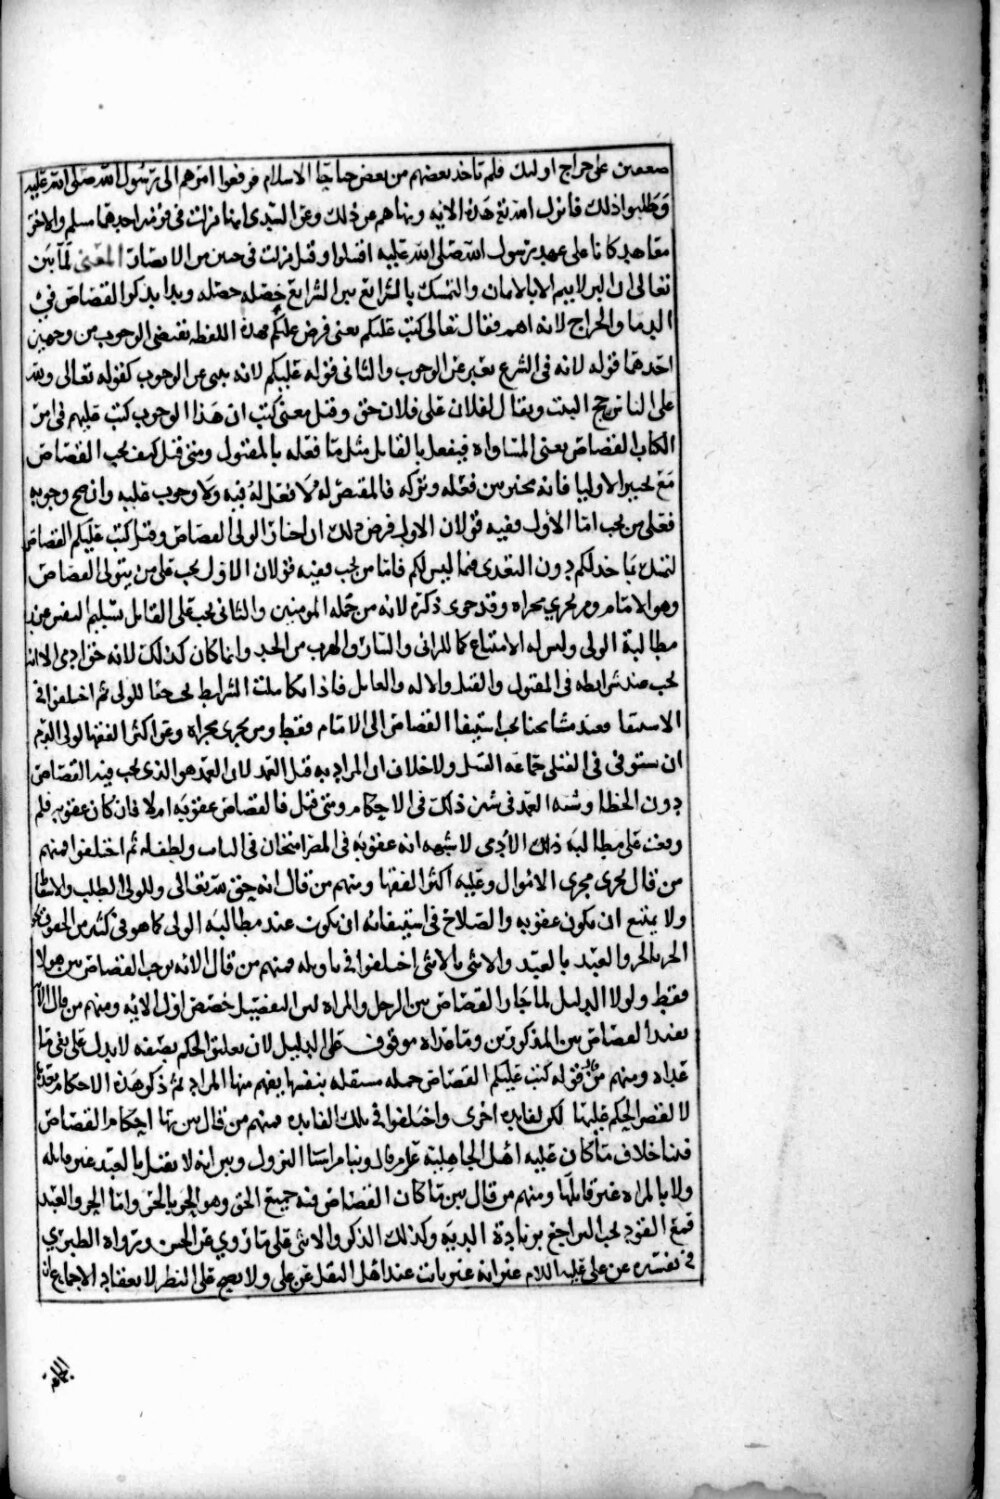 على جراح اولىك فلم تاخد بعضهم من بعض حتا جا الاسلام فرفعوا امرهم الى رسول الله صلى الله عليه
وطلبوا ذلك فانزل الله تع هذه الايه ونهاهم عن ذلك وعن السدى انها نزلت في احدهما مسلم والاخر
معاهد كانا على عهد رسول الله صلى الله عليه اقتتلوا وقيل نزلت في حيين من الانصار المعنى لما بين
تعالى ان البر لا يتم الا بالايمان والتمسك بالشرائع بين الشرائع خصله خصله وبدا بذكر القصاص في
الدما والجراح لانه اهم فقال تعالى كتب عليكم يعني فرض عليكم وهذه اللفظه تقتضى الوجوب من وجهين
احدهما قوله لانه في الشرع يعبر عن الوجوب والثانى قوله عليكم لانه ينبى عن الوجوب كقوله تعالى ولله
على الناس حج البيت ويقال لفلان على فلان حق وقيل معنى كتب ان هذا الوجوب كتب عليهم في ام
الكتاب القصاص يعنى المساواه فيفعل بالقاتل مثل ما فعله بالمقتول ومتى قيل كيف يجب القصاص
مع تخيير الاوليا فانه مخير بين فعله وتركه فالمقتص له لا فعل له فيه ولا وجوب عليه وان صح وجوبه
فعلى من يجب اما الاول ففيه قولان الاول فرض ذلك ان اختار الولى القصاص وقيل كتب عليكم القصاص
دون التعدى فيما ليس لكم فاما من يجب ففيه قولان الاول يجب على من يتولى القصاص
وهو الامام ومن يجرى مجراه وقد جرى ذكره لانه من جمله المومنين والثانى يجب على القاتل تسليم النفس عند
مطالبة الولى وليس له الامتناع كما للزانى والسارق الهرب من الحد وانما كان كذلك لانه حق ادمى
يجب عند شرايطه في المقتول والقتل والاله والقاتل فاذا تكاملت الشرايط حقا للولى ثم اختلفوا في
الاستيفا فعند مشايخنا يجب استيفا القصاص الى الامام فقط ومن يجرى مجراه وعن اكثر الفقها لولى الدم
ان يستوفى في القتلى جماعه القتيل ولا خلاف ان المراد به قتل العمد لان العمد هو الذى يجب فيه القصاص
دون الخطا وشبه العمد في ذلك في الاحكام ومتى قيل فالقصاص عقوبه ام لا فان كان عقوبه فلم
وقف على مطالبه ذلك الادمى لا شبهه انه عقوبه في الباب ولطف له ثم اختلفوا منهم
من قال يجرى مجرى الاموال وعليه اكثر الفقها ومنهم من قال انه حق لله تعالى وللولى الطلب والاسقاط
ولا يمتنع ان يكون عقوبه والصلاح في استيفائه ان يكون عند مطالبه الولى كما هو في كثير من الحقوق
الحر بالحر والعبد بالعبد والانثى بالانثى اختلفوا في تاويله فمنهم من قال الايه توجب القصاص بين هولا
فقط ولولا الدليل لما جاز القصاص بين الرجل والمراه لان التفصيل خصص اول الايه ومنهم من قال
القصاص بين المذكورين وما عداه موقوف على الدليل لان تعليق الحكم بصفه لا يدل على نفى ما
عداه ومنهم من قوله كتب عليكم القصاص جمله مستقله بنفسها يفهم منها المراد ثم ذكر هذه الاحكام بعد
لا لقصر الحكم عليها لكن لفايده اخرى واختلفوا في تلك الفايده فمنهم من قال بين بها احكام القصاص
خلاف ما كان عليه اهل الجاهلية على ما روينا من اسباب النزول وبين انه لا يقتل بالعبد غير قاتله
ولا بالمراه غير قاتلها ومنهم من قال بين ما كان القصاص فيه جميع الحق وهو الحر بالحر واما الحر والعبد
فمع القود يجب التراجع بزيادة الدية وكذلك الذكر والانثى على ما روي عن الحسن ورواه الطبري
في تفسيره عن على عليه السلام غير انه غير ثابت عند اهل النقل عن على ولا يصح على النظر لانعقاد الاجماع ان